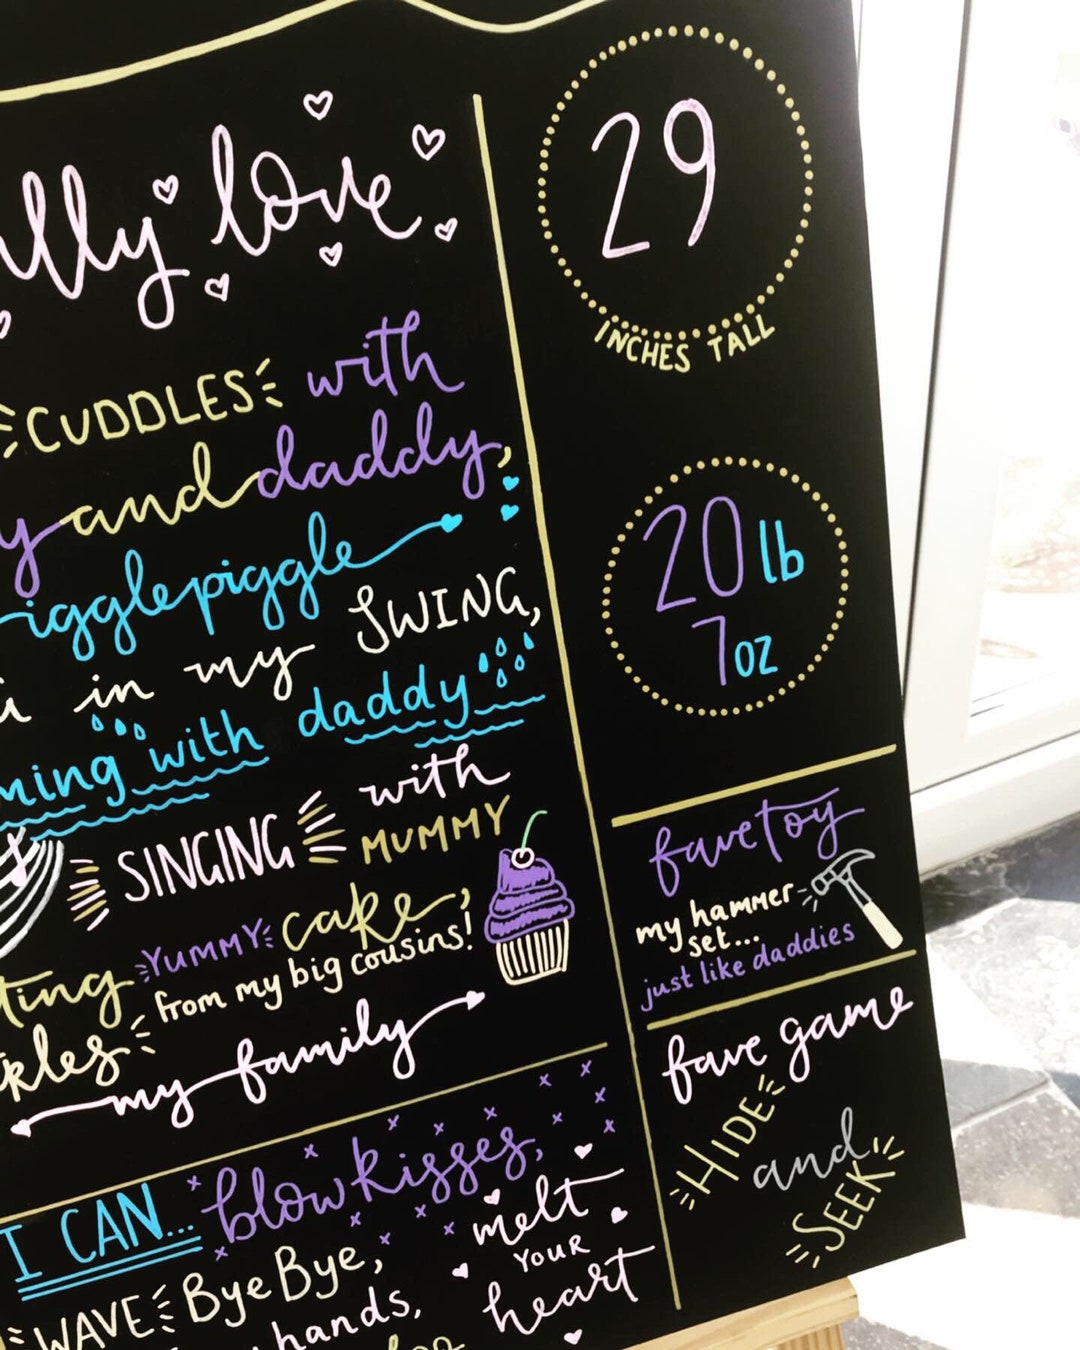 love
CUDDLES with
and daddy,
in my SWING,
with daddy
SINGING with
MUMMY
YUMMY cake,
from my big cousins!
my family
I CAN... blow kisses,
WAVE Bye Bye,
hands,
melt
YOUR
heart
29
INCHES TALL
20 lb
7 oz
fave toy
my hammer
set...
just like daddies
fave game
HIDE
and
SEEK